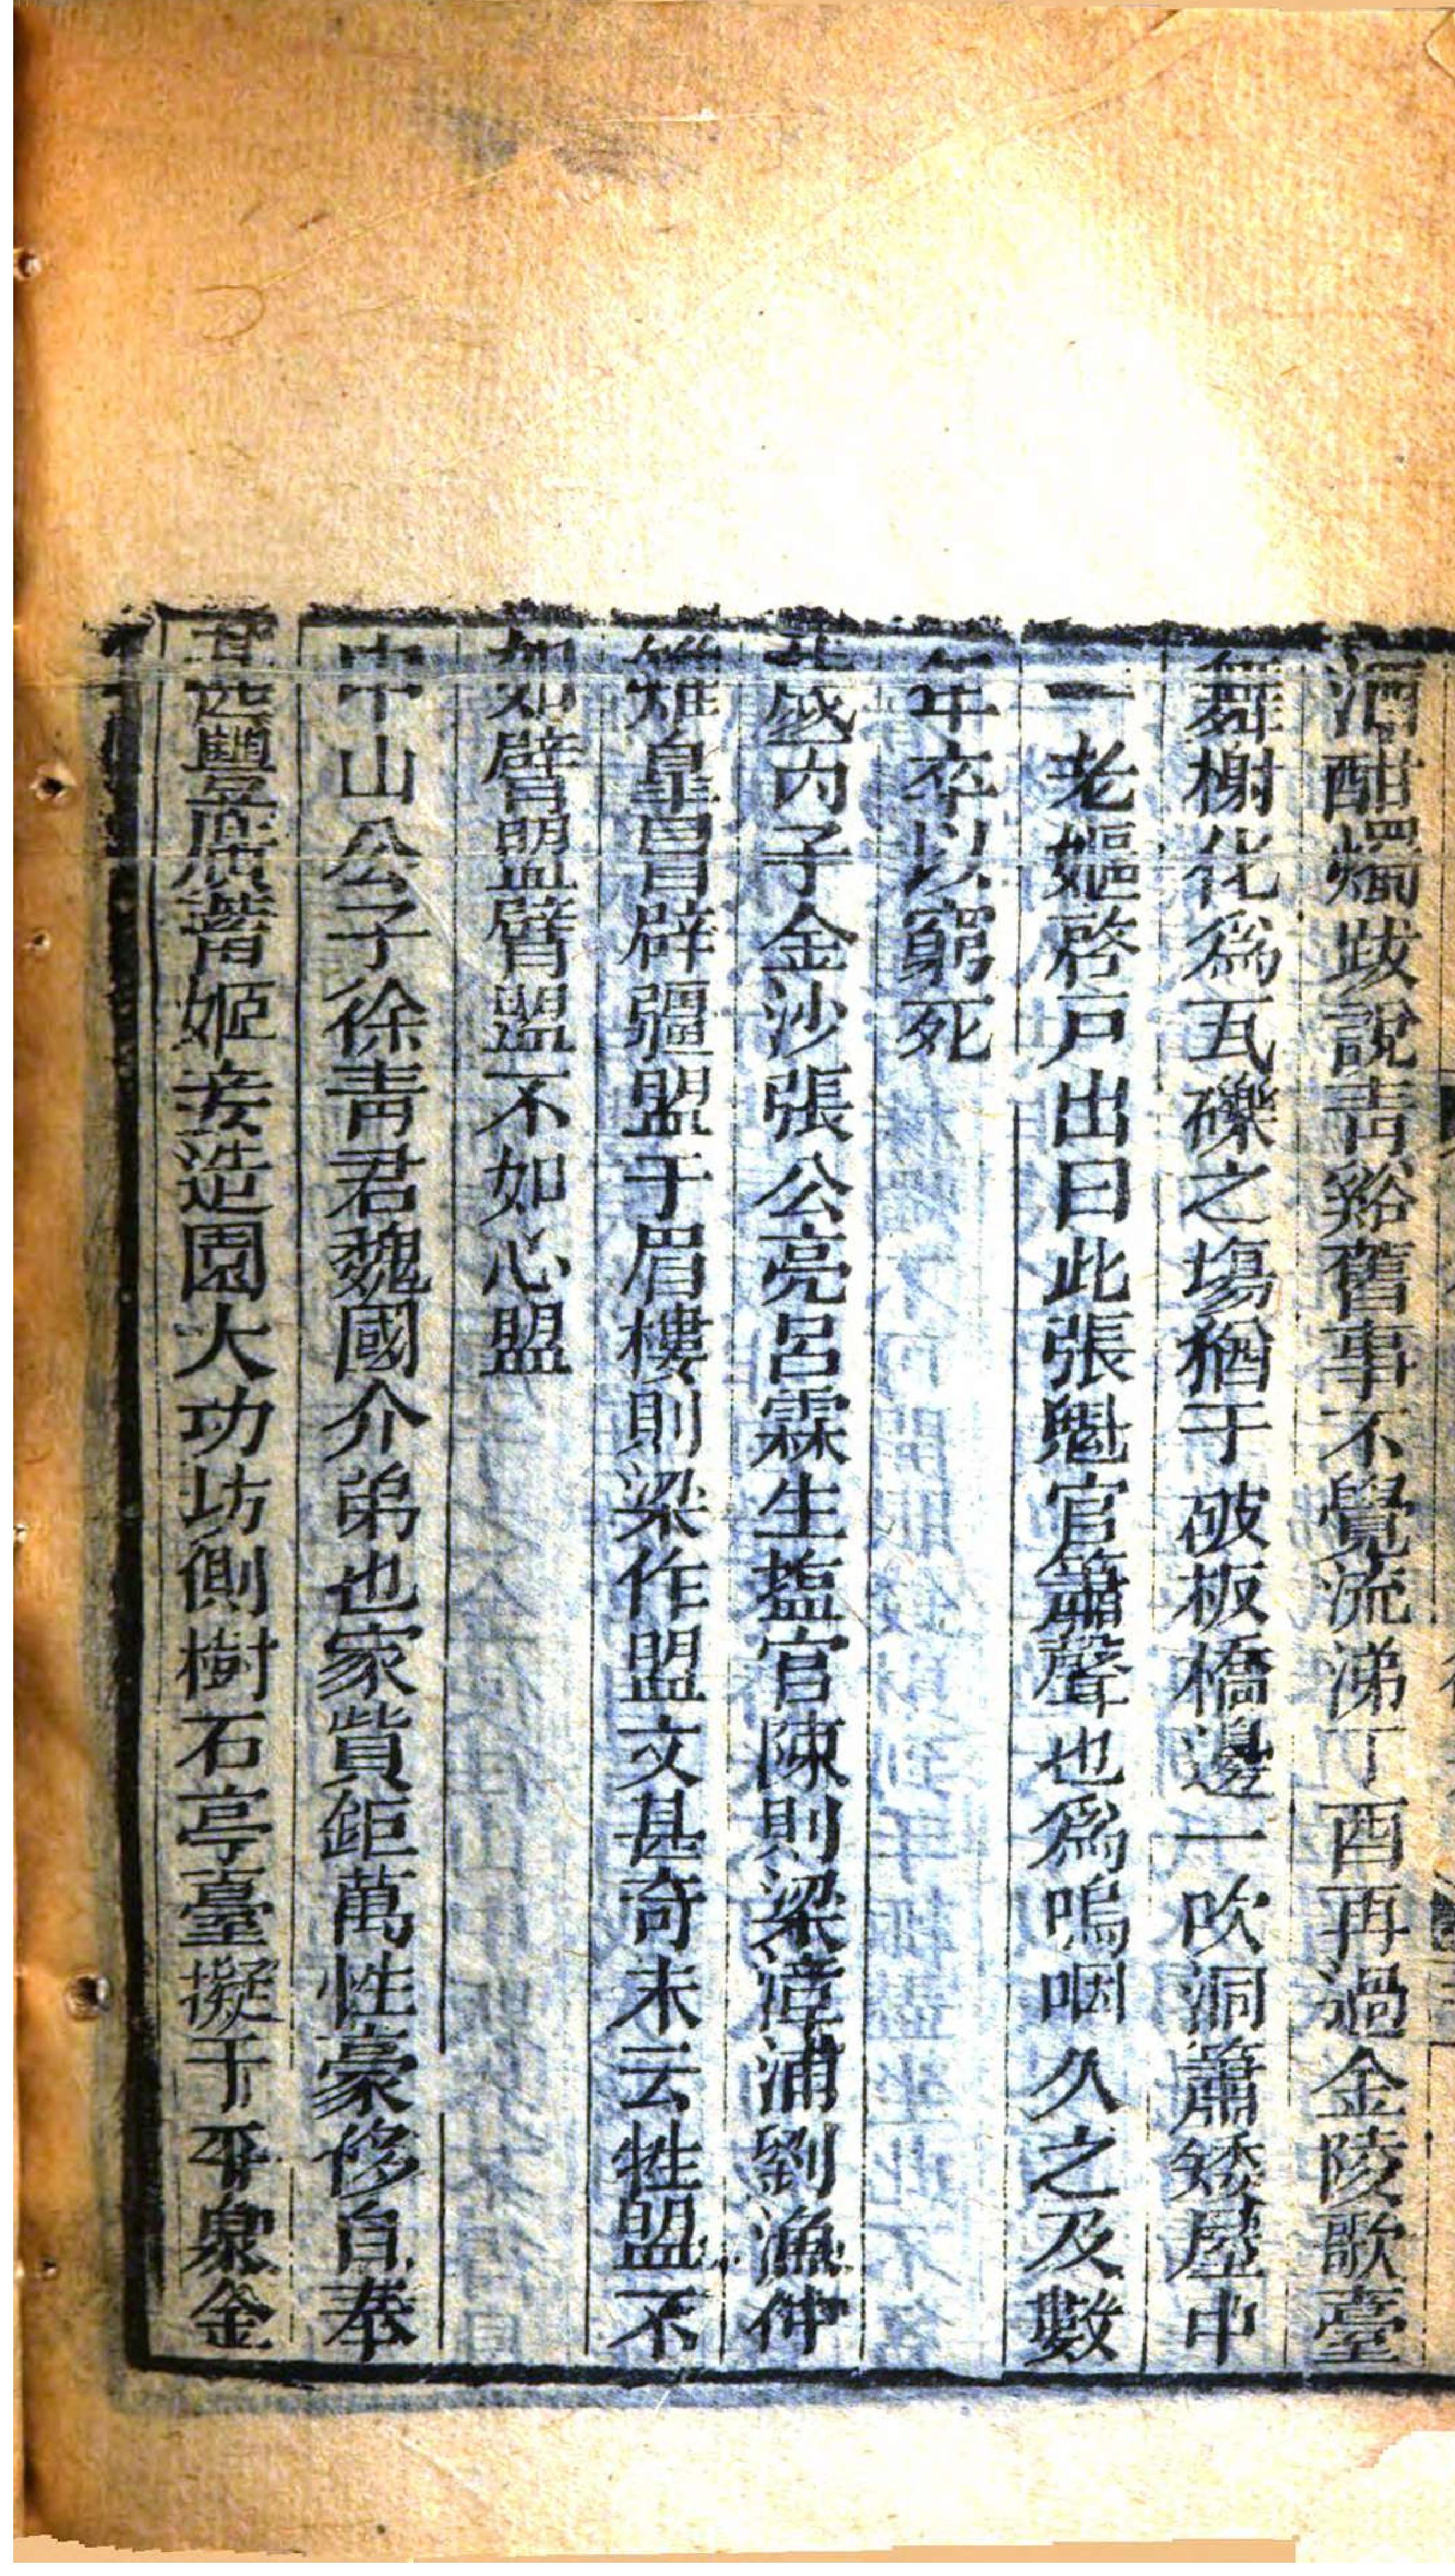 酒酣燭跋說青谿舊事不覺流涕丁酉再過金陵歌臺
舞榭化爲瓦礫之場猶于破板橋邊一吹洞簫矮屋中
一老嫗啓戶出曰此張魁官簫聲也爲嗚咽久之及數
年卒以窮死
歲丙子金沙張公亮呂霖生塩官陳則梁漳浦劉漁仲
雉皐冒辟疆盟于眉樓則梁作盟文甚奇末云牲盟不
如臂盟臂盟不如心盟
中山公子徐青君魏國介弟也家貲鉅萬性豪侈自奉
甚豐廣蓄姬妾造園大功坊側樹石亭臺擬于平泉金